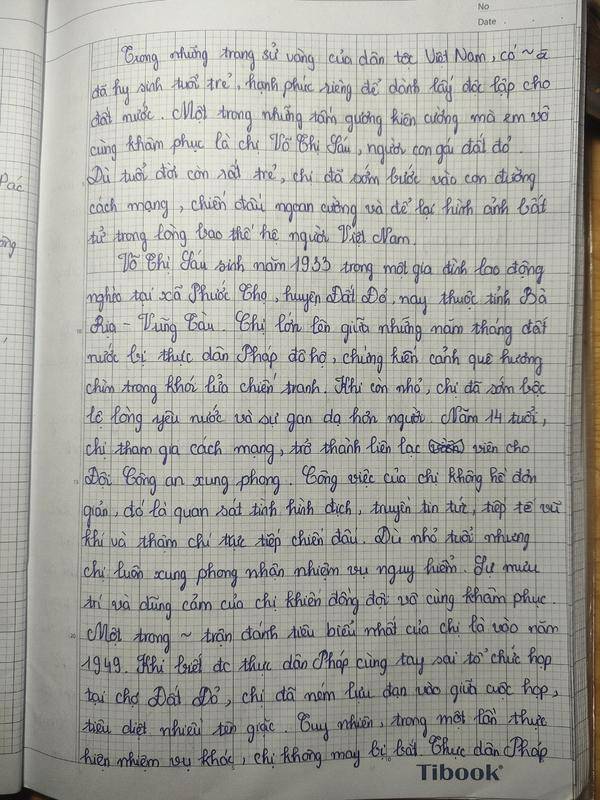 No
Date . .
Pác
ông
Trong những trang sử vàng của dân tộc Việt Nam, có ~ ã
đã hy sinh tuổi trẻ, hạnh phúc riêng để dành lấy độc lập cho
đất nước. Một trong những tấm gương kiên cường mà em vô
cùng khâm phục là chị Võ Thị Sáu, người con gái đất đỏ.
Dù tuổi đời còn rất trẻ, chị đã sớm bước vào con đường
cách mạng, chiến đấu ngoan cường và để lại hình ảnh bất
tử trong lòng bao thế hệ người Việt Nam.
Võ Thị Sáu sinh năm 1933 trong một gia đình lao động
nghèo tại xã Phước Thọ, huyện Đất Đỏ, nay thuộc tỉnh Bà
Rịa - Vũng Tàu. Chị lớn lên giữa những năm tháng đất
nước bị thực dân Pháp đô hộ, chứng kiến cảnh quê hương
chìm trong khói lửa chiến tranh. Khi còn nhỏ, chị đã sớm bộc
lộ lòng yêu nước và sự gan dạ hơn người. Năm 14 tuổi,
chị tham gia cách mạng, trở thành liên lạc viên cho
Đội Công an xung phong. Công việc của chị không hề đơn
giản, đó là quan sát tình hình địch, truyền tin tức, tiếp tế vũ
khí và thậm chí trực tiếp chiến đấu. Dù nhỏ tuổi nhưng
chị luôn xung phong nhận nhiệm vụ nguy hiểm. Sự mưu
trí và dũng cảm của chị khiến đồng đội vô cùng khâm phục.
Một trong ~ trận đánh tiêu biểu nhất của chị là vào năm
1949. Khi biết đc thực dân Pháp cùng tay sai tổ chức họp
tại chợ Đất Đỏ, chị đã ném lựu đạn vào giữa cuộc họp,
tiêu diệt nhiều tên giặc. Tuy nhiên, trong một lần thực
hiện nhiệm vụ khác, chị không may bị bắt. Thực dân Pháp
Tibook